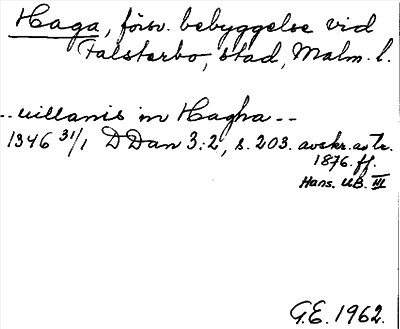 Haga, försv. bebyggelse vid
Falsterbo, stad, Malm. l.
-- villanis in Hagha --
1346 31/1 DDan 3:2, s. 203. avskr. av tr.
1876. ff.
Hans. UB. III
G.E. 1962.